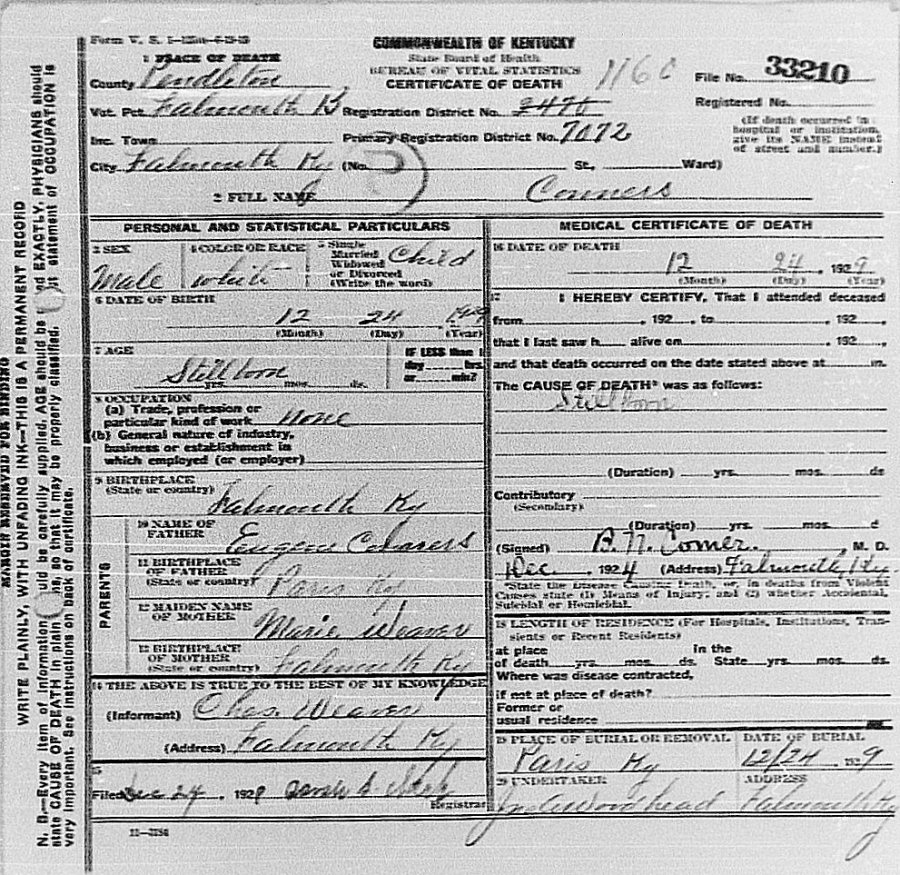 Form V. S. 1-
COMMONWEALTH OF KENTUCKY
State Board of Health
BUREAU OF VITAL STATISTICS
CERTIFICATE OF DEATH
1160
File No. 33210
Registered No.
(If death occurred in hospital or institution, give its NAME instead of street and number.)
1 PLACE OF DEATH
County Pendleton
Vot. Pct. Falmouth B Registration District No. 2470
Inc. Town Primary Registration District No. 7072
City Falmouth Ky (No. St., Ward)
2 FULL NAME Conners
PERSONAL AND STATISTICAL PARTICULARS
3 SEX Male
4 COLOR OR RACE white
5 Single Married Widowed or Divorced (Write the word) Child
6 DATE OF BIRTH
12 24 1929
(Month) (Day) (Year)
7 AGE
Stillborn
yrs. mos. ds.
IF LESS than 1
day hrs.
or min?
8 OCCUPATION
(a) Trade, profession or
particular kind of work None
(b) General nature of industry,
business or establishment in
which employed (or employer)
9 BIRTHPLACE
(State or country) Falmouth Ky
PARENTS
10 NAME OF
FATHER Eugene Conners
11 BIRTHPLACE
OF FATHER
(State or country) Paris Ky
12 MAIDEN NAME
OF MOTHER Marie Weaver
13 BIRTHPLACE
OF MOTHER
(State or country) Falmouth Ky
14 THE ABOVE IS TRUE TO THE BEST OF MY KNOWLEDGE
(Informant) Chas. Weaver
(Address) Falmouth Ky
15
Filed Dec 24, 1929
Registrar
11-3184
MEDICAL CERTIFICATE OF DEATH
16 DATE OF DEATH
12 24, 1929
(Month) (Day) (Year)
17 I HEREBY CERTIFY, That I attended deceased
from , 192 , to , 192 ,
that I last saw h alive on , 192 ,
and that death occurred on the date stated above at m.
The CAUSE OF DEATH* was as follows:
Stillborn
(Duration) yrs. mos. ds
Contributory
(Secondary)
(Duration) yrs. mos. d
(Signed) B. N. Comer. , M. D.
Dec , 1924 (Address) Falmouth, Ky
*State the Disease Causing Death, or, in deaths from Violent
Causes state (1) Means of Injury; and (2) whether Accidental,
Suicidal or Homicidal.
18 LENGTH OF RESIDENCE (For Hospitals, Institutions, Tran-
sients or Recent Residents)
at place in the
of death yrs. mos. ds. State yrs. mos. ds.
Where was disease contracted,
if not at place of death?
Former or
usual residence
19 PLACE OF BURIAL OR REMOVAL DATE OF BURIAL
Paris Ky 12/24 1929
20 UNDERTAKER ADDRESS
Jno A Woodhead Falmouth Ky
MARGIN RESERVED FOR BINDING
WRITE PLAINLY, WITH UNFADING INK—THIS IS A PERMANENT RECORD
N. B.—Every item of information should be carefully supplied. AGE should be EXACTLY. PHYSICIANS should
state CAUSE OF DEATH in plain so that it may be properly classified. statement of OCCUPATION is
very important. See instructions on back of certificate.